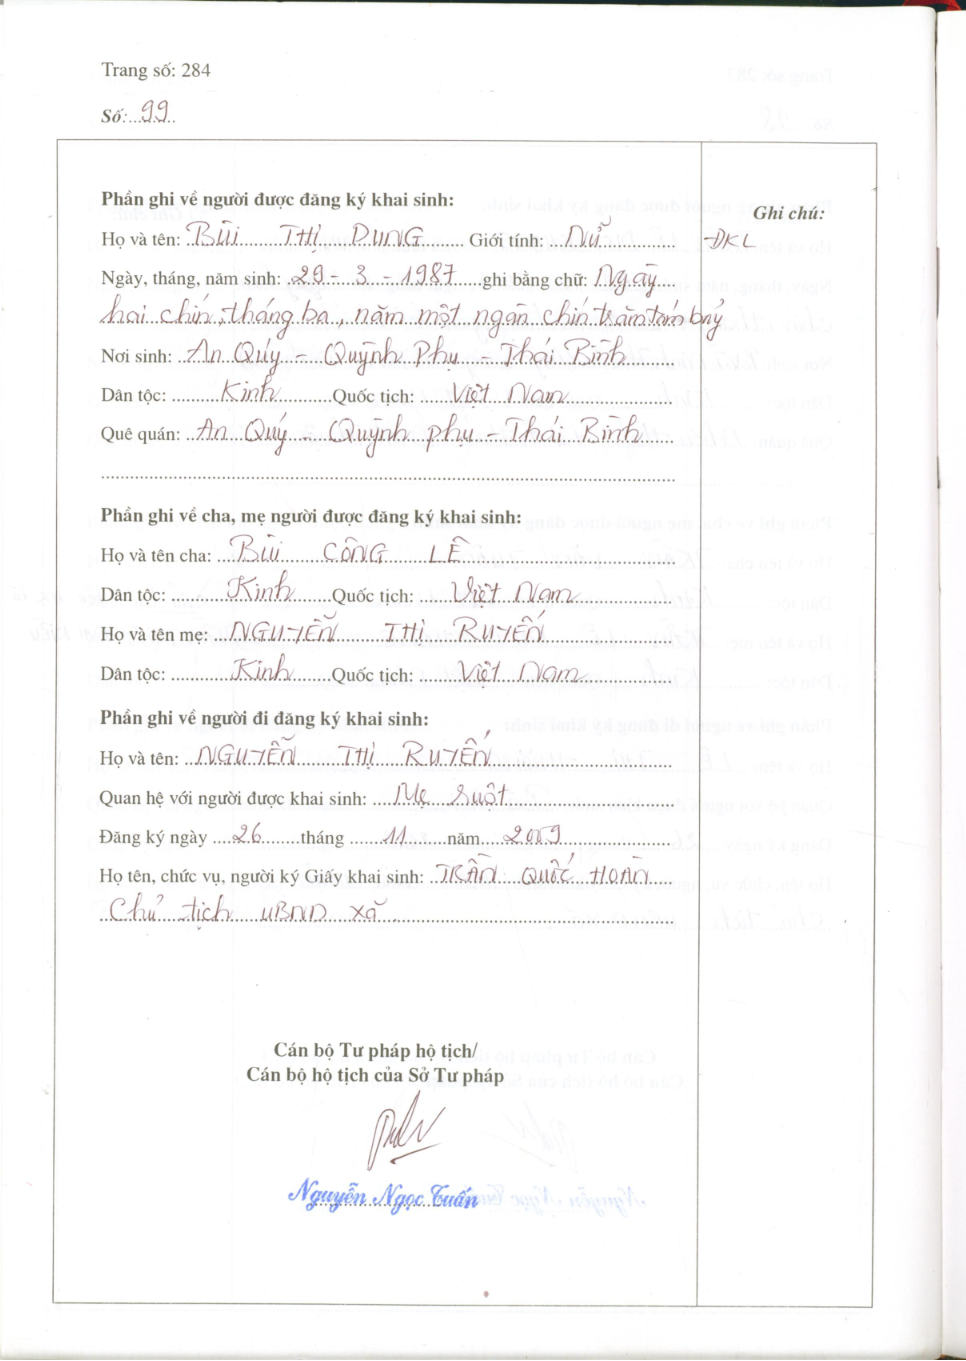 Trang số: 284
Số: 99
Phần ghi về người được đăng ký khai sinh:
Ghi chú:
Họ và tên: BÙI THỊ DUNG Giới tính: Nữ
ĐKL
Ngày, tháng, năm sinh: 29 - 3 - 1987 ghi bằng chữ: Ngày
hai chín, tháng ba, năm một ngàn chín trăm tám bảy
Nơi sinh: An Quý - Quỳnh Phụ - Thái Bình
Dân tộc: Kinh Quốc tịch: Việt Nam
Quê quán: An Quý - Quỳnh Phụ - Thái Bình
Phần ghi về cha, mẹ người được đăng ký khai sinh:
Họ và tên cha: BÙI CÔNG LÊ
Dân tộc: Kinh Quốc tịch: Việt Nam
Họ và tên mẹ: NGUYỄN THỊ RUYẾN
Dân tộc: Kinh Quốc tịch: Việt Nam
Phần ghi về người đi đăng ký khai sinh:
Họ và tên: NGUYỄN THỊ RUYẾN
Quan hệ với người được khai sinh: Mẹ
Đăng ký ngày 26 tháng 11 năm 2009
Họ tên, chức vụ, người ký Giấy khai sinh: TRẦN QUỐC HOÀN
Chủ tịch UBND xã
Cán bộ Tư pháp hộ tịch/
Cán bộ hộ tịch của Sở Tư pháp
Nguyễn Ngọc Tuấn